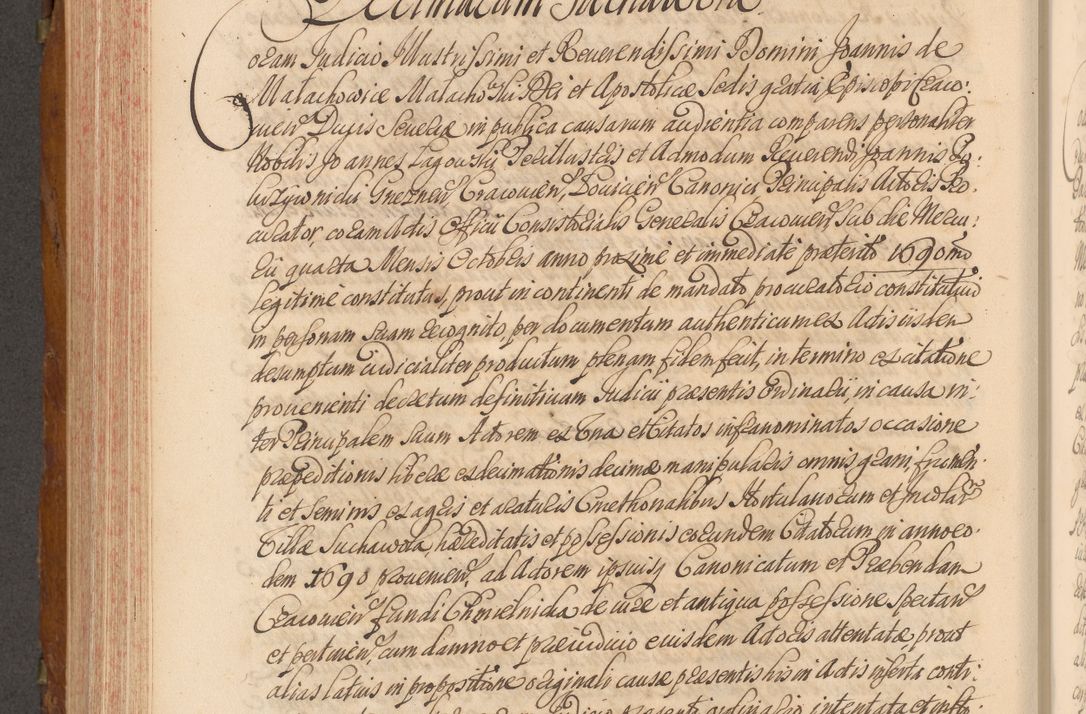 Decimarum Suchawola
Coram Judicio Illustrissimi et Reverendissimi Domini Joannis de
Małachowice Małachowski Dei et Apostolicæ Sedis gratia Episcopi Craco:
vien Ducis Severiæ in publica causarum audientia comparens personaliter
Nobilis Joannes Łagowski Pocillastris et Admodum Reverendi Joannis
Gneznen, Cracovien, Lovicien Canonici Principalis Actoris Pro-
curator, coram Actis Officii Consistorialis Generalis Cracovien, sub die Mercu:
rii quarta Mensis Octobris anno proxime et immediate præterito 1690mo
legitime constitutus, prout in continenti de mandato procuratorio constitutivo
in personam suam recognito, per documentum authenticum ex Actis iisdem
desumptum iudicialiter productum plenam fidem fecit, in termino ex citatione
provenienti decretum definitivum Judicii præsentis Ordinarii, in causa in-
ter Principalem suum Actorem ex Una et Citatos infranominatos occasione
præpeditionis liberæ exdecimationis decimæ manipularis omnis grani, frumen-
ti et seminis ex agris et araturis Cmethonalibus Hortulanorum et
Villæ Suchawola, hæreditatis et possessionis eorundem Citatorum, in anno eo-
dem 1690 provenien, ad Actorem ipsiusq Canonicatum et Præbendam
Cracovien fundi Chmielnicka de iure et antiqua possessione spectan
et pertinen, cum damno et præiudicio eiusdem Actoris attentatæ, prout
alias latius in propositione originali causæ præsentis his in Actis inserta conti:
Judicio præsenti ordinario intentata et